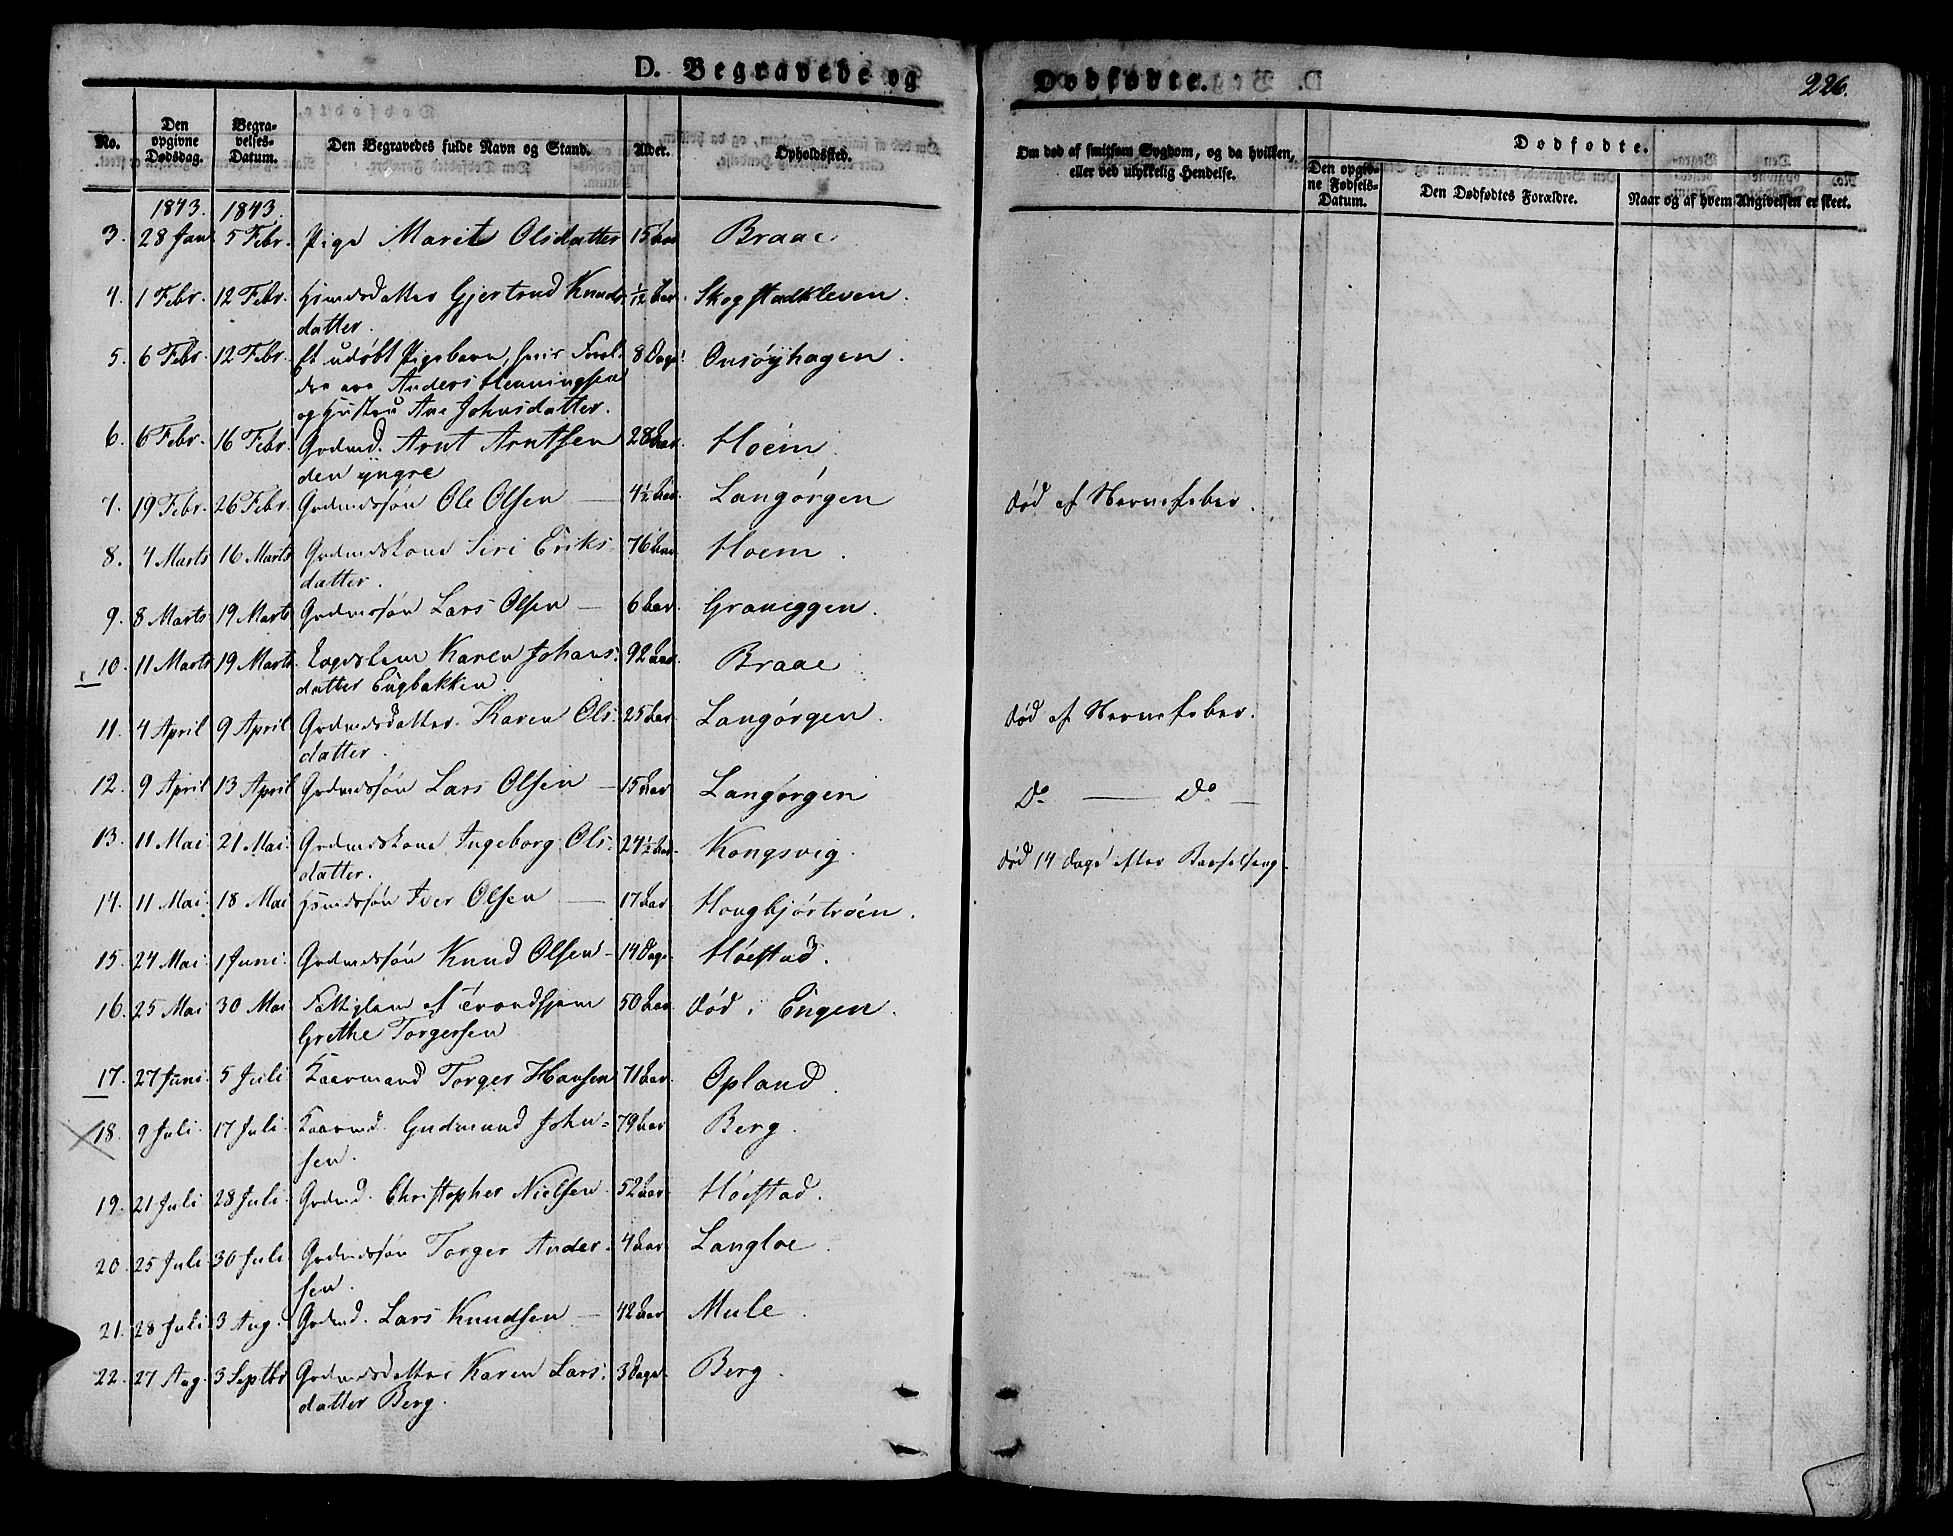 D. Begravede og Dødfødte. 226.
No. Den opgivne Dødsdag. Begravelses-Datum. Den Begravedes fulde Navn og Stand. Alder. Opholdssted. Om død af smitsom Sygdom, og da hvilken, eller ved ulykkelig Hendelse. Dødfødte. Den opgivne Fødsels-Datum. Den Dødfødtes Forældre. Naar og af hvem Angivelsen er skeet.
1843. 1843.
3. 28 Jan 5 Febr. Pige Marit Olsdatter 15 Aar Braae
4. 1 Febr. 12 Febr. Hsmdsdatter Gjertrud Knuds- 1/12 Aar. Skogstadkleven.
datter.
5. 6 Febr. 12 Febr. Et udøbt Pigebarn, hvis Foræl- 8 Dage. Onsøyhagen.
dre ere Anders Henningsen
og Hustru Ane Johnsdatter.
6. 6 Febr. 16 Febr. Grdmd. Arnt Arntsen 28 Aar. Hoem.
den yngre
7. 19 Febr. 26 Febr. Grdmdssøn Ole Olsen — 4½ Aar. Langørgen død af Nervefeber.
8. 4 Marts 16 Marts Grdmdskone Siri Eriks- 76 Aar. Hoem.
datter.
9. 8 Marts 19 Marts Grdmdssøn Lars Olsen — 6 Aar. Graneggen.
10. 11 Marts 19 Marts Lægdslem Karen Johans- 92 Aar. Braae
datter Engbakken.
11. 4 April 9 April Grdmdsdatter Karen Ols- 25 Aar. Langørgen. død af Nervefeber.
datter.
12. 9 April 13 April Grdmdssøn Lars Olsen — 15 Aar Langørgen Do — Do —
13. 11 Mai 21 Mai. Grdmdskone Ingeborg Ols- 24½ Aar. Kongsvig. død 14 Dage efter Barselseng.
datter.
14. 11 Mai. 18 Mai Hsmdssøn Iver Olsen — 17 Aar Hougbjørtrøen.
15. 24 Mai 1 Juni. Grdmdssøn Knud Olsen — 14 Dage. Høestad.
16. 25 Mai 30 Mai Fattiglem af Trondhjem 50 Aar død i Engen.
Grethe Torgersen
17. 27 Juni. 5 Juli Kaarmand Torger Hansen 71 Aar. Opland.
18. 9 Juli. 17 Juli. Kaarmd. Gudmund John- 79 Aar Berg.
sen.
19. 21 Juli 28 Juli. Grdmd. Christopher Nielsen. 52 Aar. Høestad.
20. 25 Juli 30 Juli Grdmdssøn Torger Ander- 4 Aar. Langloe.
sen.
21. 28 Juli. 3 Aug. Grdmd. Lars Knudsen — 42 Aar Mule.
22. 27 Aug. 3 Septbr Grdmdsdatter Karen Lars- 3 Dage. Berg.
datter Berg.